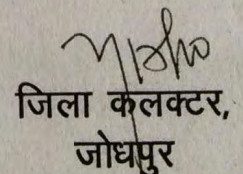 जिला कलक्टर,
जोधपुर